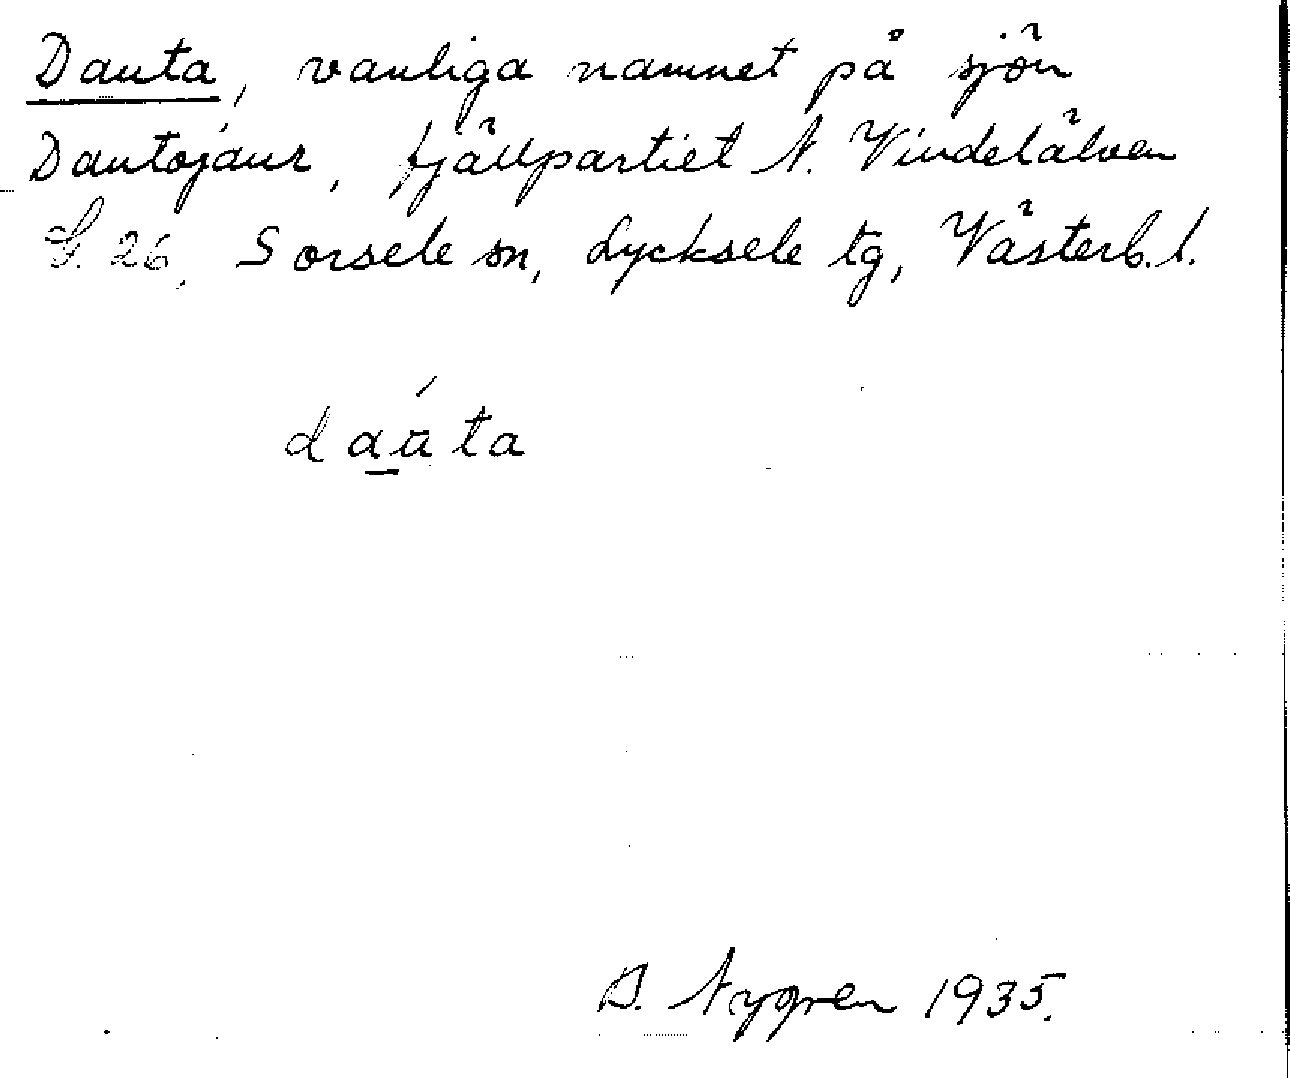 Dauta, vanliga namnet på sjön
Dautojaur, fjällpartiet N. Vindelälven
S. 26, Sorsele sn, Lycksele tg, Västerb. l.
daúta
Nygren 1935.